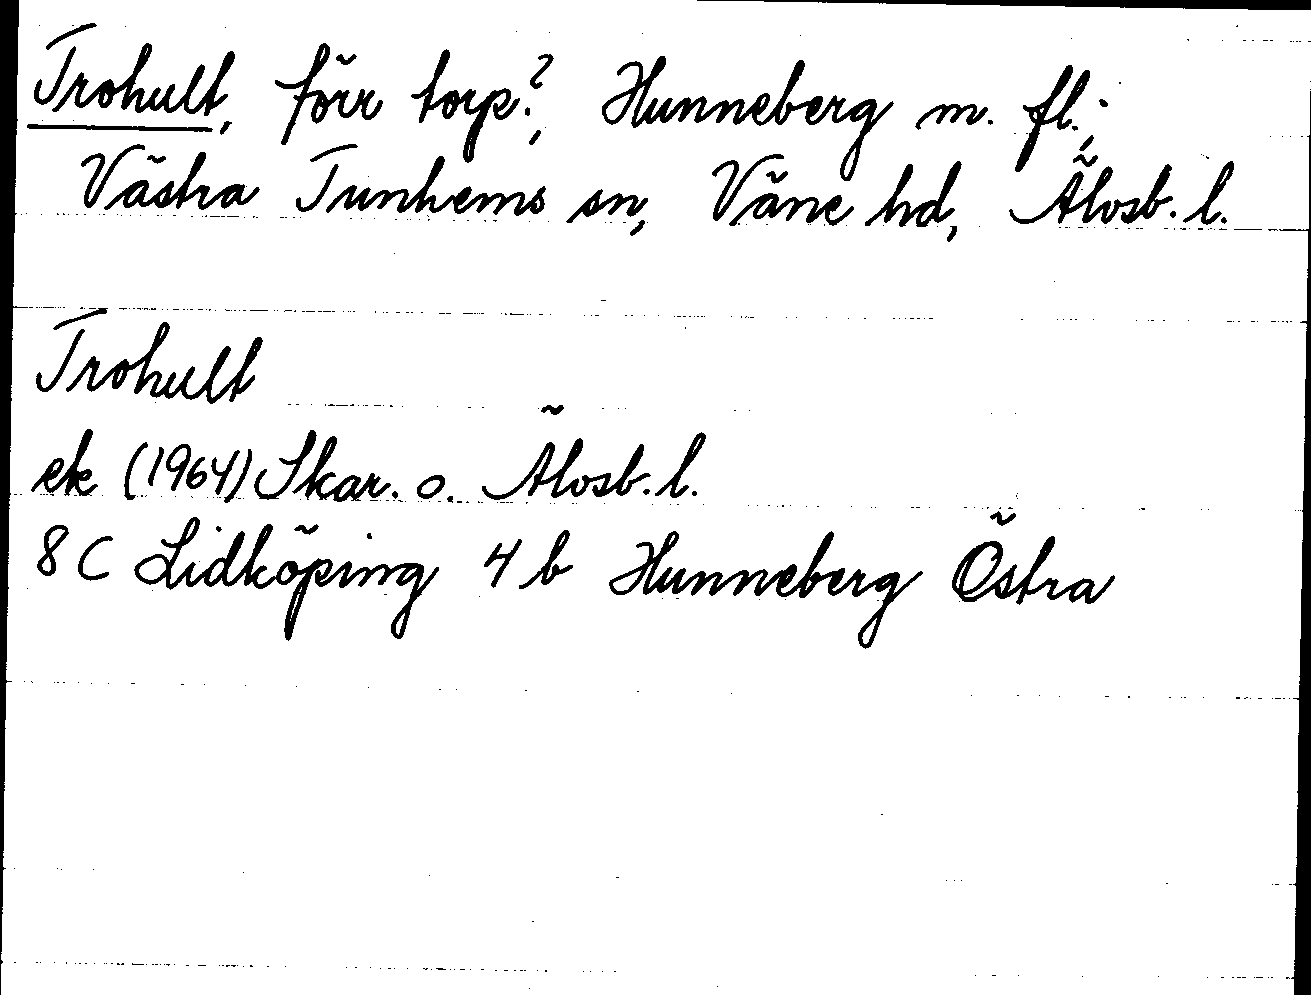 Trohult, förr torp?, Hunneberg m. fl.;
Västra Tunhems sn, Väne hd, Älvsb. l.
Trohult
ek (1964) Skar. o. Älvsb. l.
8 C Lidköping 4 b Hunneberg Östra